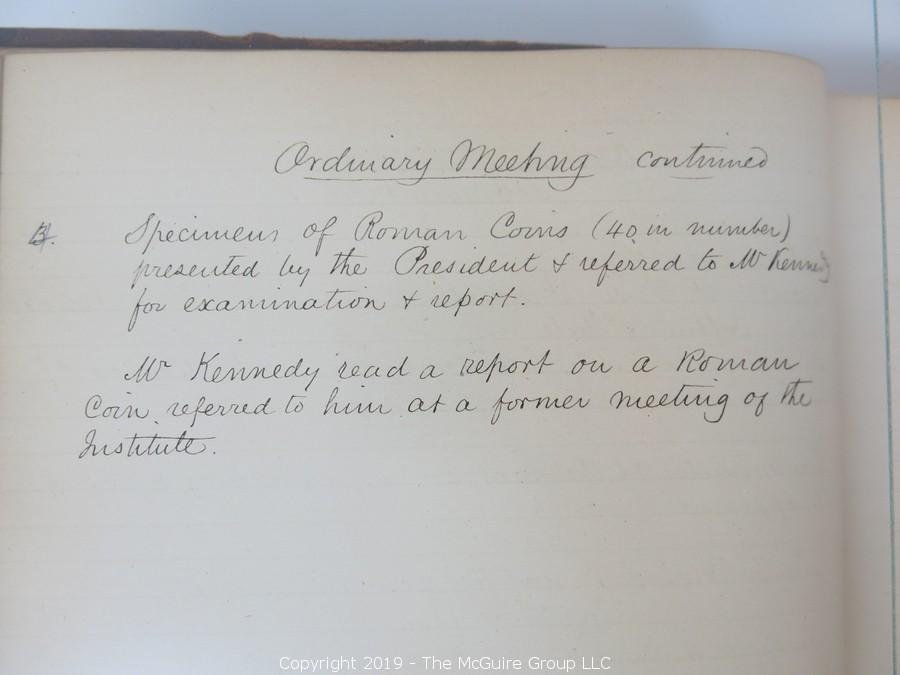 Ordinary Meeting continued
Specimens of Roman Coins (40 in number)
presented by the President & referred to Mr Kennedy
for examination & report.
Mr Kennedy read a report on a Roman
Coin referred to him at a former meeting of the
Institute.
Copyright 2019 - The McGuire Group LLC